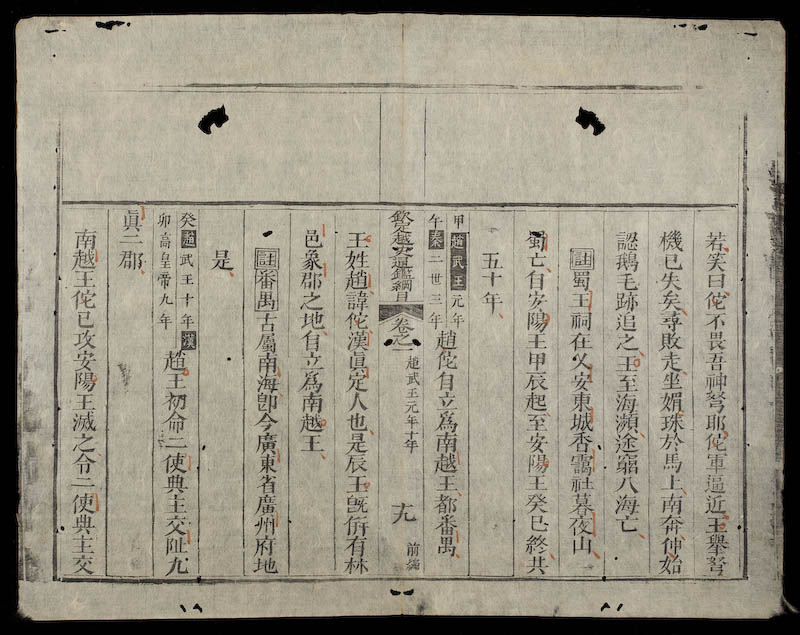 若笑曰佗不畏吾神弩耶佗軍逼近王舉弩
機已失矣尋敗走坐媚珠於馬上南奔仲始
認鵝毛跡追之王至海瀕途窮入海亡
註蜀王祠在乂安東城香靄社暮夜山
蜀亡自安陽王甲辰起至安陽王癸巳終共
五十年
甲午趙武王元年秦二世三年趙佗自立爲南越王都番禺
欽定越史通鑑綱目 卷之一 趙武王元年十年 十九 前編
王姓趙諱佗漢眞定人也是辰王旣併有林
邑象郡之地自立爲南越王
註番禺古屬南海卽今廣東省廣州府地
是
癸卯趙武王十年漢高皇帝九年趙王初命二使典主交阯九
眞二郡
南越王佗已攻安陽王滅之令二使典主交